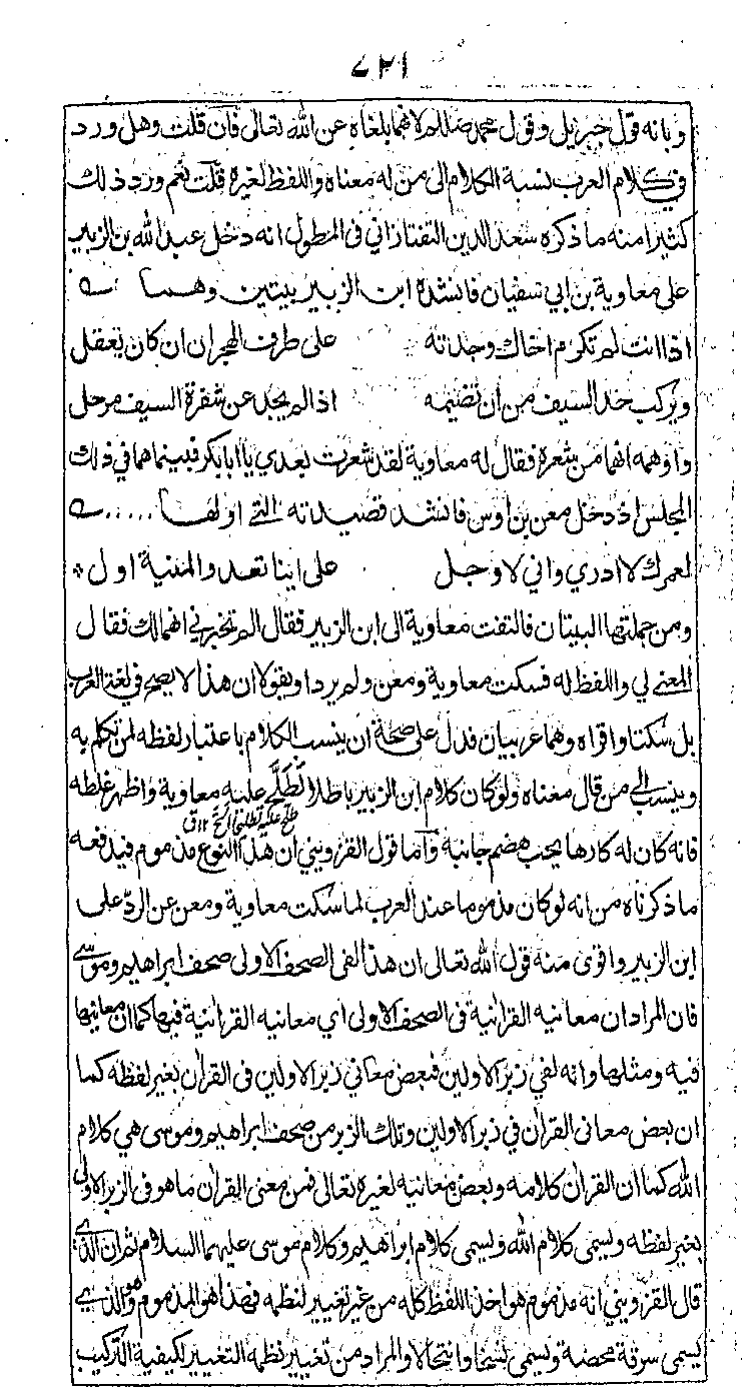 ٧٢١
وبانه قول جبريل وقول محمد صللم لانهما بلغاه عن الله تعالى فان قلت وهل ورد
في كلام العرب نسبة الكلام الى من له معناه واللفظ لغيره قلت نعم ورد ذلك
كثيرا منه ما ذكره سعد الدين التفتازاني في المطول انه دخل عبد الله بن الزبير
على معاوية بن ابي سفيان فانشده ابن الزبير بيتين وهما
اذا انت لم تكرم اخاك وجدته على طرف الهجران ان كان يعقل
ويركب حد السيف من ان تضيمه اذا لم يجد عن شفرة السيف مرحل
واوهمه انهما من شعره فقال له معاوية لقد شعرت بعدي يا ابا بكر فبينما هما في ذلك
المجلس اذ دخل معن بن اوس فانشد قصيدته التي اولها .....
لعمرك لا ادري واني لاوجل على اينا تعد والمنية اول
ومن جملتها البيتان فالتفت معاوية الى ابن الزبير فقال الم تخبرني انهما لك فقال
المعنى لي واللفظ له فسكت معاوية ومعن ولم يردا ويقولا ان هذا لا يصح في لغة العرب
بل سكتا واقراه وهما عربيان فدل على صحة ان ينسب الكلام باعتبار لفظه لمن تكلم به
وينسب الى من قال معناه ولو كان كلام ابن الزبير باطلا لطلى عليه معاوية واظهر غلطه
فانه كان له كارها يحب هضم جانبه وآما قول القزويني ان هذا النوع مذموم فيدفعه
ما ذكرناه من انه لو كان مذموما عند العرب لما سكت معاوية ومعن عن الرد على
ابن الزبير واقوى منه قول الله تعالى ان هذا لفي الصحف الاولى صحف ابراهيم وموسى
فان المراد ان معانيه القرانية في الصحف الاولى اي معانيه القرانية فيها كما ان معانيها
فيه ومثلها وانه لفي زبر الاولين فبعض معاني زبر الاولين في القران بغير لفظه كما
ان بعض معاني القران في زبر الاولين وتلك الزبر من صحف ابراهيم وموسى هي كلام
الله كما ان القران كلامه وبعض معانيه لغيره تعالى فمن معنى القران ما هو في الزبر الاولى
بغير لفظه ويسمى كلام الله ويسمى كلام ابراهيم وكلام موسى عليهما السلام ثم ان الذي
قال القزويني انه مذموم هو اخذ اللفظ كله من غير تغيير لنظمه فهذا هو المذموم وهو الذي
يسمى سرقة محضة ويسمى نسخا وانتحالا والمراد من تغيير نظمه التغيير لكيفية التركيب